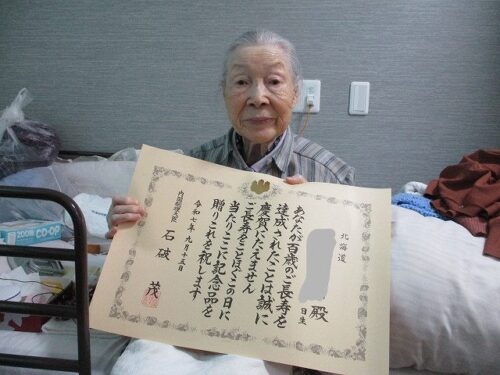 北海道
殿
日生
あなたが百歳のご長寿を
達成されたことは誠に
慶賀にたえません
ご長寿をことほぐこの日に
当たりここに記念品を
贈りこれを祝します
令和七年九月十五日
内閣総理大臣 石破 茂
CO-OP